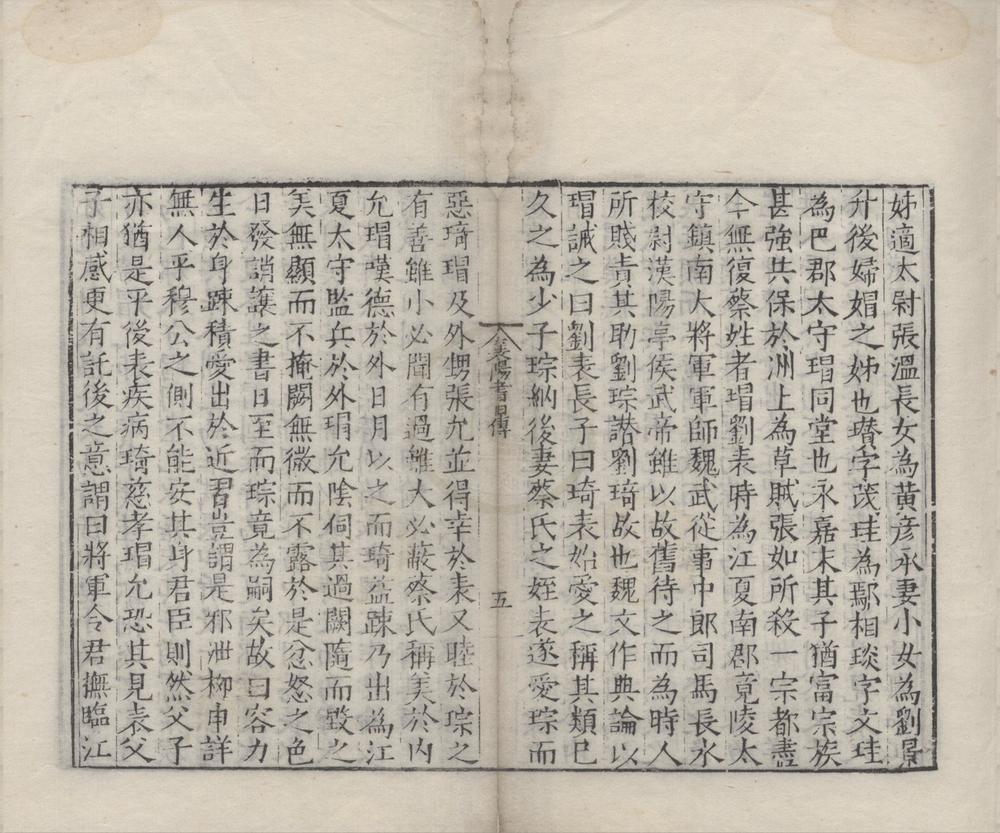 姊適太尉張溫長女為黃彥承妻小女為劉景
升後婦媢之姊也瓚字茂珪為鄢相琰字文珪
為巴郡太守瑁同堂也永嘉末其子猶富宗族
甚強共保於洲上為草賊張如所殺一宗都盡
今無復蔡姓者瑁劉表時為江夏南郡竟陵太
守鎮南大將軍軍師魏武從事中郎司馬長水
校尉漢陽亭侯武帝雖以故舊待之而為時人
所賤責其助劉琮譖劉琦故也魏文作典論以
瑁誡之曰劉表長子曰琦表始愛之稱其類已
久之為少子琮納後妻蔡氏之姪表遂愛琮而
襄陽耆舊傳
五
惡琦瑁及外甥張允並得幸於表又睦於琮之
有善雖小必聞有過雖大必蔽蔡氏稱美於內
允瑁嘆德於外日月以之而琦益踈乃出為江
夏太守監兵於外瑁允陰伺其過闕隨而毀之
美無顯而不掩闕無微而不露於是忿怒之色
日發誚讓之書日至而琮竟為嗣矣故曰容力
生於身踈積愛出於近習豈謂是邪泄柳申詳
無人乎穆公之側不能安其身君臣則然父子
亦猶是乎後表疾病琦慈孝瑁允恐其見表父
子相感更有託後之意謂曰將軍令君撫臨江